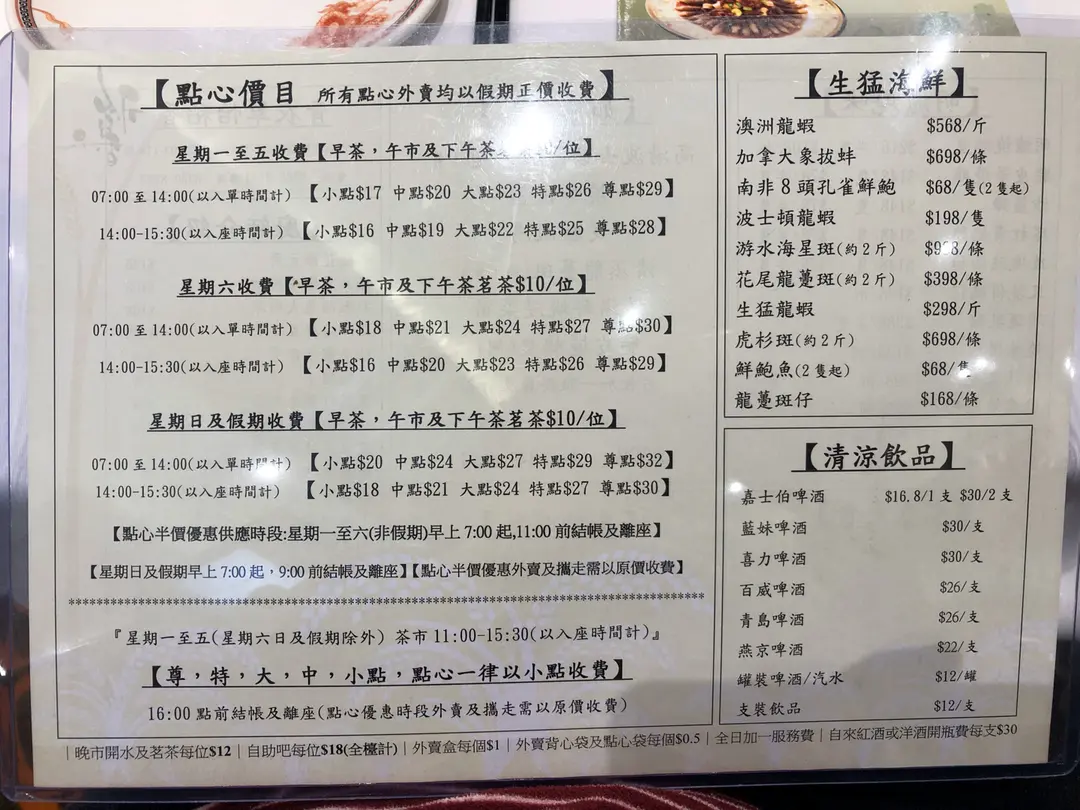 【點心價目 所有點心外賣均以假期正價收費】
星期一至五收費【早茶，午市及下午茶 /位】
07:00 至 14:00(以入單時間計) 【小點$17 中點$20 大點$23 特點$26 尊點$29】
14:00-15:30(以入座時間計) 【小點$16 中點$19 大點$22 特點$25 尊點$28】
星期六收費【早茶，午市及下午茶茗茶$10/位】
07:00 至 14:00(以入單時間計) 【小點$18 中點$21 大點$24 特點$27 尊點$30】
14:00-15:30(以入座時間計) 【小點$16 中點$20 大點$23 特點$26 尊點$29】
星期日及假期收費【早茶，午市及下午茶茗茶$10/位】
07:00 至 14:00(以入單時間計) 【小點$20 中點$24 大點$27 特點$29 尊點$32】
14:00-15:30(以入座時間計) 【小點$18 中點$21 大點$24 特點$27 尊點$30】
【點心半價優惠供應時段:星期一至六(非假期)早上 7:00 起,11:00 前結帳及離座】
【星期日及假期早上 7:00 起，9:00 前結帳及離座】【點心半價優惠外賣及攜走需以原價收費】
『星期一至五(星期六日及假期除外) 茶市 11:00-15:30(以入座時間計)』
【尊，特，大，中，小點，點心一律以小點收費】
16:00 點前結帳及離座(點心優惠時段外賣及攜走需以原價收費)
【生猛海鮮】
澳洲龍蝦 $568/斤
加拿大象拔蚌 $698/條
南非 8 頭孔雀鮮鮑 $68/隻(2 隻起)
波士頓龍蝦 $198/隻
游水海星斑(約 2 斤) /條
花尾龍躉斑(約 2 斤) $398/條
生猛龍蝦 $298/斤
虎杉斑(約 2 斤) $698/條
鮮鮑魚(2 隻起) $68/隻
龍躉斑仔 $168/條
【清涼飲品】
嘉士伯啤酒 $16.8/1 支 $30/2 支
藍妹啤酒 $30/支
喜力啤酒 $30/支
百威啤酒 $26/支
青島啤酒 $26/支
燕京啤酒 $22/支
罐裝啤酒/汽水 $12/罐
支裝飲品 $12/支
| 晚市開水及茗茶每位$12 | 自助吧每位$18(全檯計) | 外賣盒每個$1 | 外賣背心袋及點心袋每個$0.5 | 全日加一服務費 | 自來紅酒或洋酒開瓶費每支$30